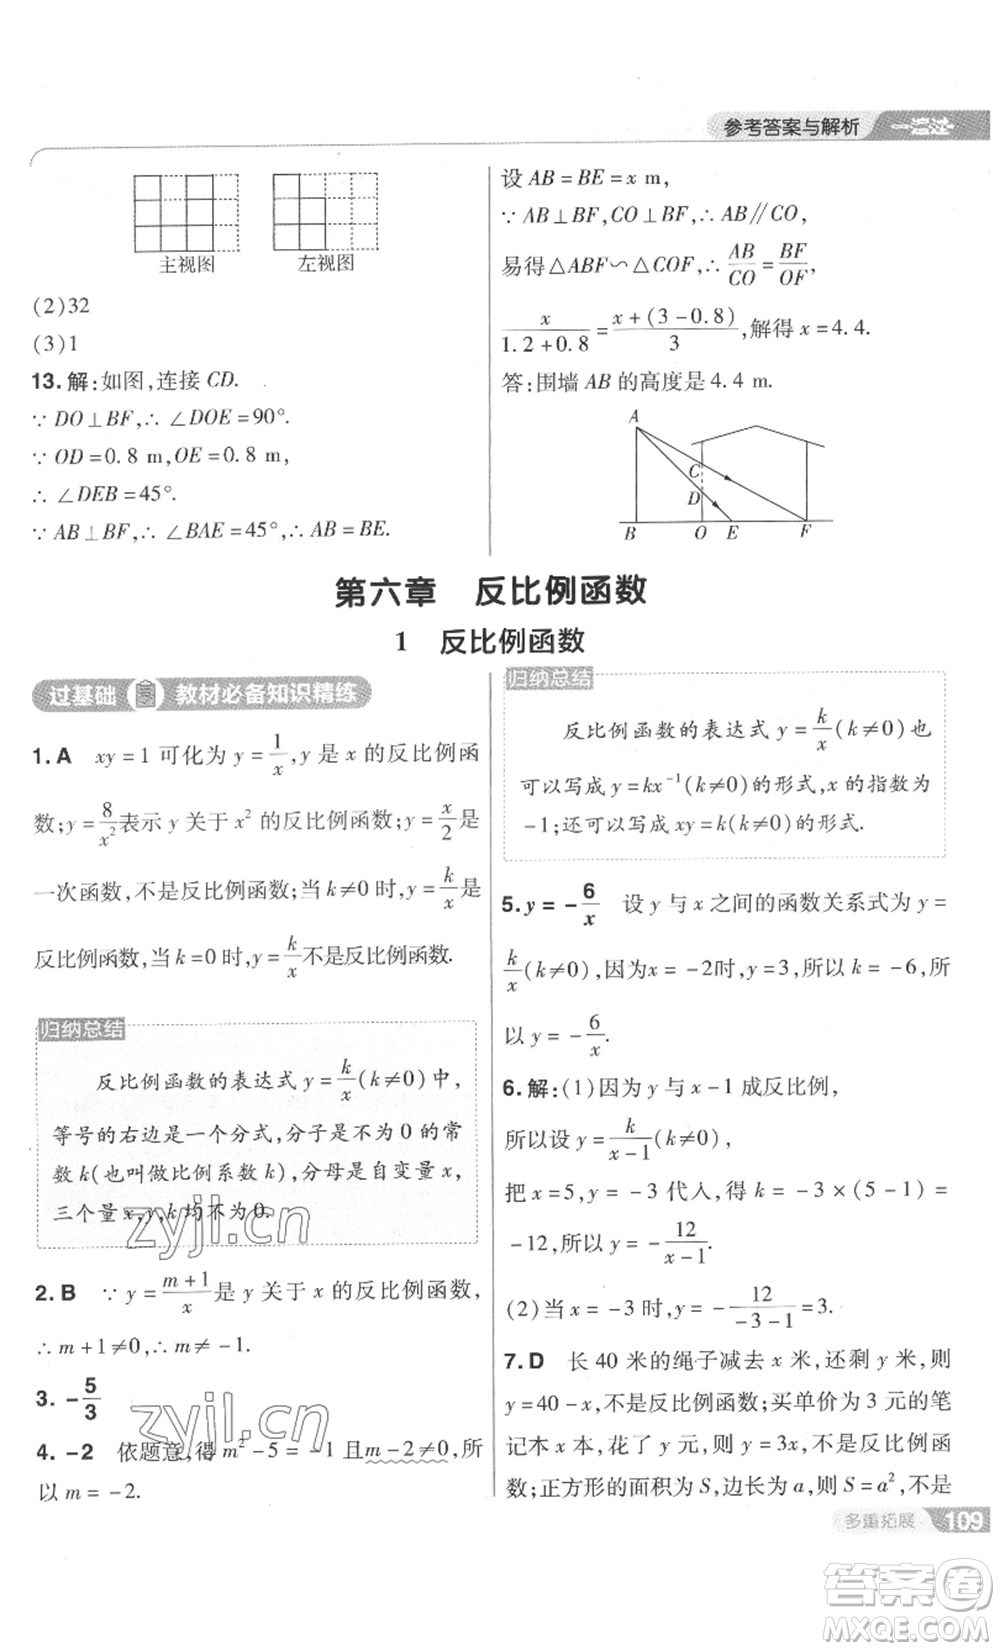 参考答案与解析 一本
主视图 左视图
(2)32
(3)1
13.解:如图,连接 CD.
∵ DO⊥BF,∴ ∠DOE=90°.
∵ OD=0.8 m,OE=0.8 m,
∴ ∠DEB=45°.
∵ AB⊥BF,∴ ∠BAE=45°,∴ AB=BE.
设 AB=BE=x m,
∵ AB⊥BF,CO⊥BF,∴ AB∥CO,
易得△ABF∽△COF,∴ AB/CO=BF/OF,
x/(1.2+0.8)=(x+(3-0.8))/3,解得 x=4.4.
答:围墙 AB 的高度是 4.4 m.
A
C
D
B O E F
第六章 反比例函数
1 反比例函数
过基础 教材必备知识精练
1.A xy=1 可化为 y=1/x,y 是 x 的反比例函
数;y=8/x²表示 y 关于 x² 的反比例函数;y=x/2是
一次函数,不是反比例函数;当 k≠0 时,y=k/x是
反比例函数,当 k=0 时,y=k/x不是反比例函数.
归纳总结
反比例函数的表达式 y=k/x(k≠0)中,
等号的右边是一个分式,分子是不为 0 的常
数 k(也叫做比例系数 k),分母是自变量 x,
三个量 x,y,k 均不为 0.
2.B ∵ y=(m+1)/x是 y 关于 x 的反比例函数,
∴ m+1≠0,∴ m≠-1.
3. -5/3
4. -2 依题意,得 m²-5=-1 且 m-2≠0,所
以 m=-2.
归纳总结
反比例函数的表达式 y=k/x(k≠0)也
可以写成 y=kx⁻¹(k≠0)的形式,x 的指数为
-1;还可以写成 xy=k(k≠0)的形式.
5.y=-6/x 设 y 与 x 之间的函数关系式为 y=
k/x(k≠0),因为x=-2时,y=3,所以 k=-6,所
以 y=-6/x.
6.解:(1)因为 y 与 x-1 成反比例,
所以设 y=k/(x-1)(k≠0),
把 x=5,y=-3 代人,得 k=-3×(5-1)=
-12,所以 y=-12/(x-1).
(2)当 x=-3 时,y=-12/(-3-1)=3.
7.D 长 40 米的绳子减去 x 米,还剩 y 米,则
y=40-x,不是反比例函数;买单价为 3 元的笔
记本 x 本,花了 y 元,则 y=3x,不是反比例函
数;正方形的面积为 S,边长为 a,则 S=a²,不是
多重拓展 109
zyjl.cn
zyjl.cn
答案卷
MXQE.COM